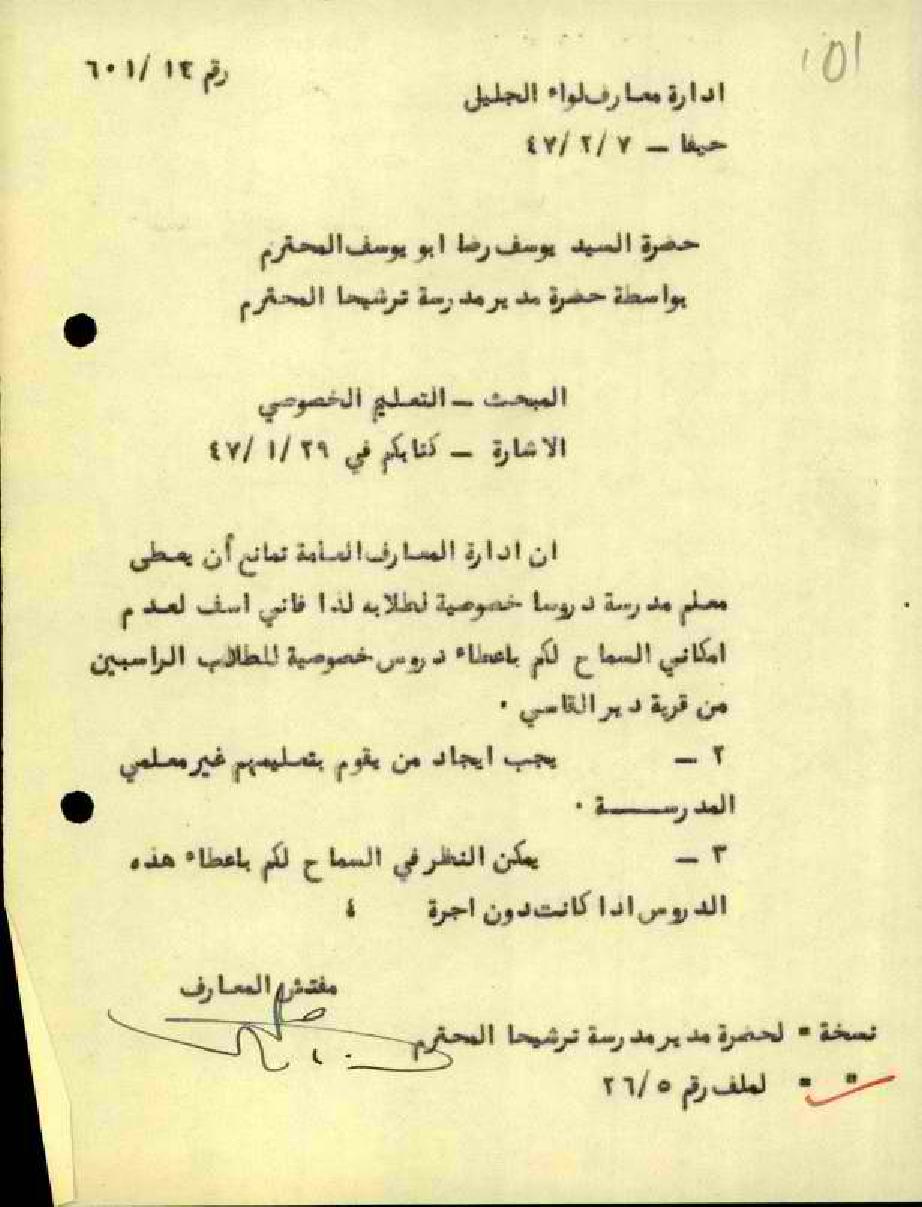 ١٥١
رقم ١٣ /٦٠١
ادارة معارف لواء الجليل
حيفا – ٤٧/٢/٧
حضرة السيد يوسف رضا ابو يوسف المحترم
بواسطة حضرة مدير مدرسة ترشيحا المحترم
المبحث – التعليم الخصوصي
الاشارة – كتابكم في ٤٧/١/٢٩
ان ادارة المعارف العامة تمانع أن يعطى
معلم مدرسة دروسا خصوصية لطلابه لذا فاني اسف لعدم
امكاني السماح لكم باعطاء دروس خصوصية للطلاب الراسبين
من قرية دير القاسي ٠
٢ – يجب ايجاد من يقوم بتعليمهم غير معلمي
المدرســـة ٠
٣ – يمكن النظر في السماح لكم باعطاء هذه
الدروس اذا كانت دون اجرة ٤
مفتش المعارف
نسخة = لحضرة مدير مدرسة ترشيحا المحترم
" = لملف رقم ٢٦/٥